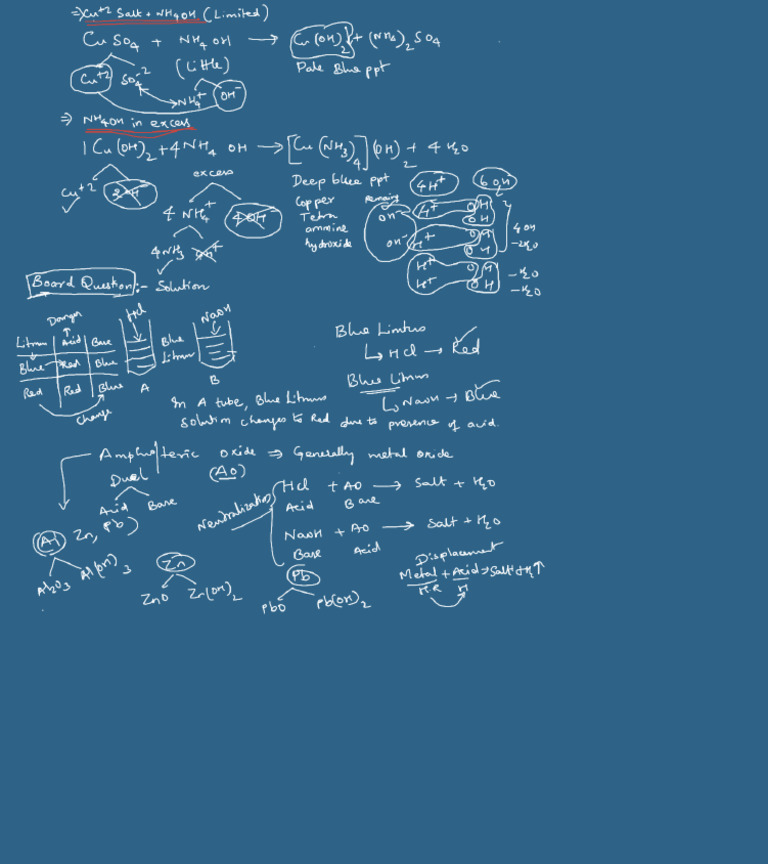 ⇒ Cu+2 Salt + NH4OH (Limited)
CuSO4 + NH4OH → Cu(OH)2↓ + (NH4)2SO4
(Little)
Pale Blue ppt
Cu+2 SO4-2
NH4+ OH-
⇒ NH4OH in excess
1 Cu(OH)2 + 4NH4OH → [Cu(NH3)4](OH)2 + 4H2O
excess
Cu+2 2OH-
4NH4+ 4OH-
4NH3 4H+
Deep blue ppt
Copper
Tetra
ammine
hydroxide
4H+ 6OH
remaining
OH- H+ OH
OH
OH- H+ OH
OH
4OH
-2H2O
H+ OH -H2O
H+ OH -H2O
Board Question :- Solution
Danger
Litmus Acid Base
Blue Red Blue
Red Red Blue
Change
HCl
A
Blue
Litmus
NaOH
B
Blue Limtus
↳ HCl → Red
Blue Litmus
↳ NaOH → Blue
In A tube, Blue Litmus
solution changes to Red due to presence of acid.
Amphoteric oxide ⇒ Generally metal oxide
Dual (AO)
Acid Base
Al, Zn, Pb)
Al2O3 Al(OH)3
Zn
ZnO Zn(OH)2
Pb
PbO Pb(OH)2
Neutralization
HCl + AO → Salt + H2O
Acid Base
NaOH + AO → Salt + H2O
Base Acid
Displacement
Metal + Acid → Salt + H2↑
H.R H